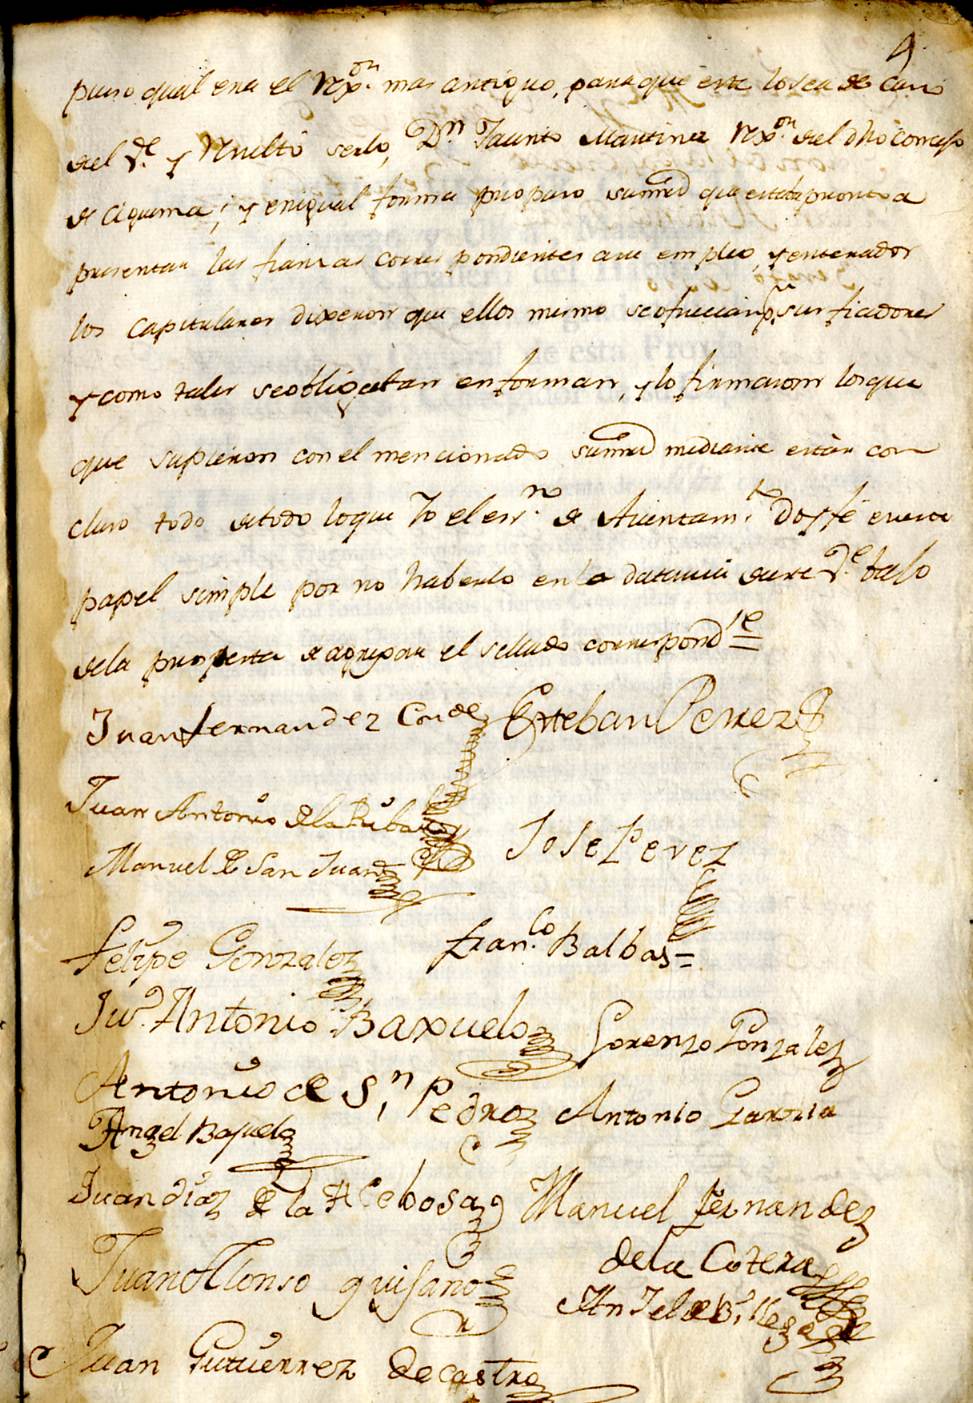 4
puso qual era el Rx.on mas antiguo, para que este lo sea de
del V.e y Rueltò serlo, D.n Jacinto Martinez Rx.on del dho Concejo
de Ciguenza; y en igual forma propuso sumrd que estaba pronto a
presentar las fianzas correspondientes a su empleo, y enterados
los Capitulares dixeron que ellos mismo se ofrecian p.r sus fiadores
y como tales se obligaban en forma, y lo firmaron los que
que supieron con el mencionado sumrd mediante estàr con
cluso todo de todo lo que Yo el ess.no de Aiuntam.to doy fé en este
papel simple por no haberlo en la de este V.e bajo
de la protesta de agregar el sellado correspond.te
Juan fernandez Conde Esteban Perez
Juan Antonio de la Riba
Jose Perez
Manuel de San Juan
felipe Gonzalez fran.co Balbas
Ju.o Antonio Baxuelo Lorenzo Gonzalez
Antonio de S.n Pedro Antonio Garzia
Angel Bajuelo
Juan diaz de la Acebosa Manuel fernandez
de la Cotera
Juan Alonso quijano
Juan Gutierrez de castro